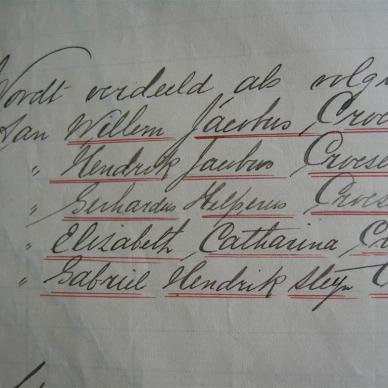 Wordt verdeeld als volgt
Aan Willem Jacobus Croe
" Hendrik Jacobus Croese
" Gerhardus Helperus Croes
" Elizabeth Catharina Cr
" Gabriel Hendrik Steyn C